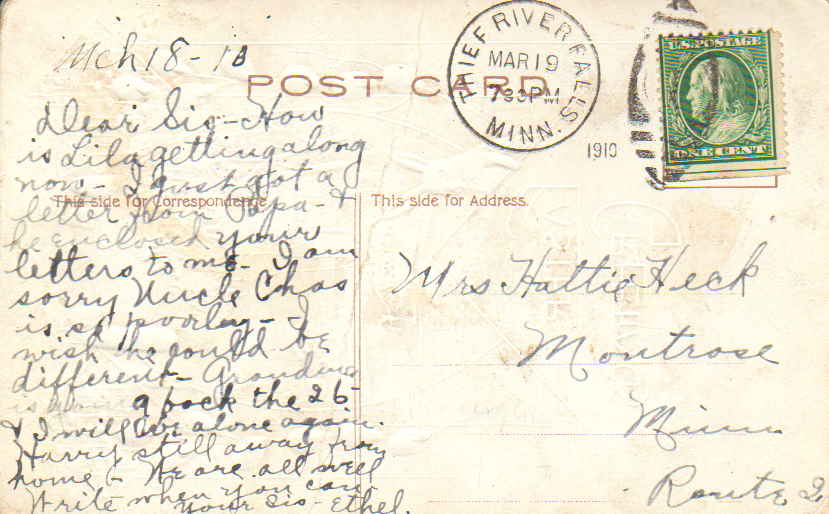 Mch 18 - 10
POST CARD
THIEF RIVER FALLS
MAR 19
7 30 PM
MINN.
1910
U.S. POSTAGE
ONE CENT
Dear Sis - How
is Lila getting along
now - I just got a
This side for Correspondence
letter from Papa - &
he enclosed your
letters to me - I am
sorry Uncle Chas
is so poorly - I
wish he could be
different - Grandma
is going back the 26 -
& I will be alone again.
Harry still away from
home - We are all well
Write when you can
Your Sis - Ethel.
This side for Address.
Mrs Hattie Heck
Montrose
Minn
Route 2